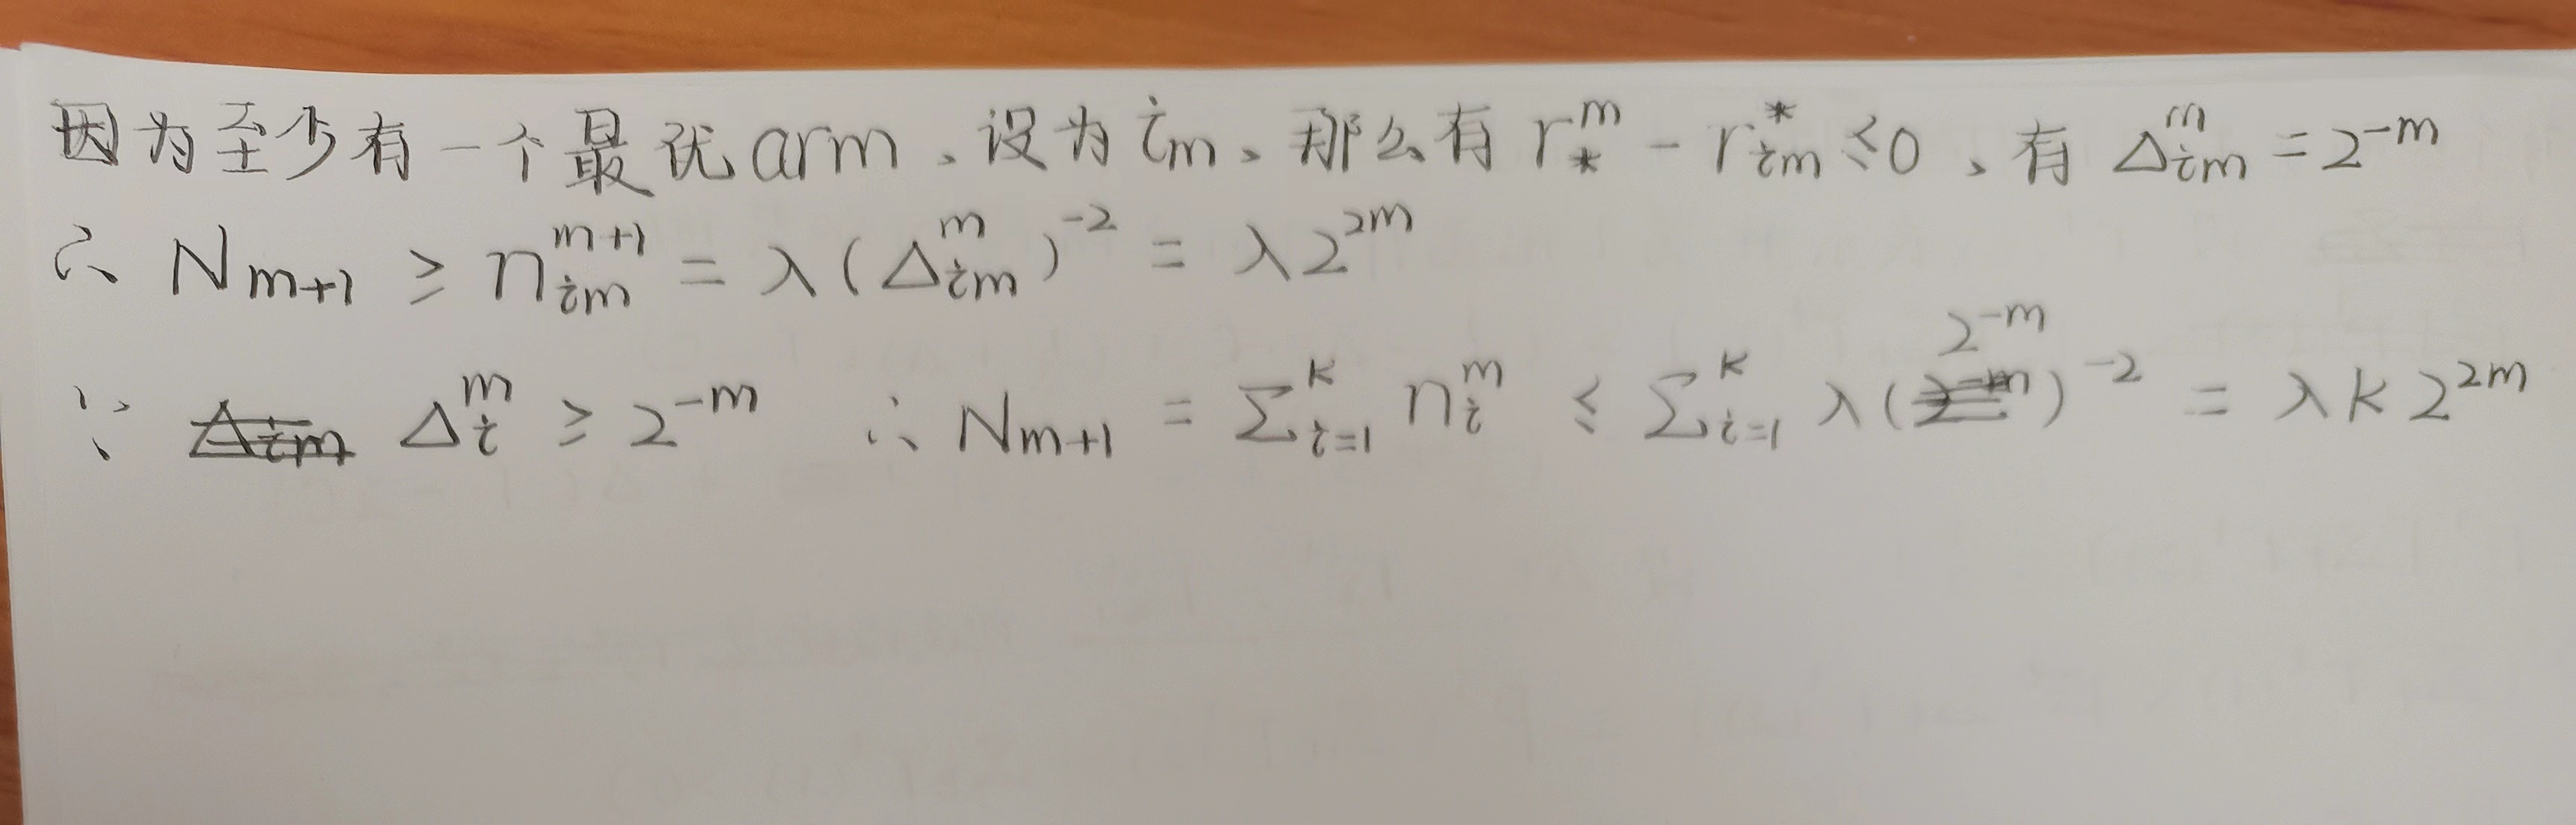 因为至少有一个最优arm、设为 i_m、那么有 r_*^m - r_{im}^* ≤ 0、有 Δ_{im}^m = 2^{-m}
∴ N_{m+1} ≥ n_{im}^{m+1} = λ(Δ_{im}^m)^{-2} = λ2^{2m}
∵ Δ_i^m ≥ 2^{-m} ∴ N_{m+1} = Σ_{i=1}^K n_i^m ≤ Σ_{i=1}^K λ(2^{-m})^{-2} = λK2^{2m}